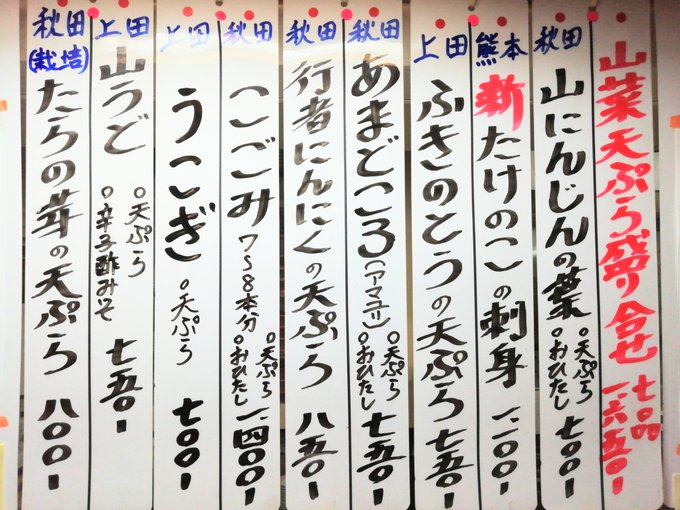 山菜天ぷら盛り合せ 一、六五〇ー
秋田
山にんじんの葉 ○天ぷら ○おひたし 七〇〇ー
熊本
新たけのこの刺身 一、二〇〇ー
上田
ふきのとうの天ぷら 七五〇ー
秋田
あまどころ(アマユリ) ○天ぷら ○おひたし 七五〇ー
秋田
行者にんにくの天ぷら 八五〇ー
秋田
こごみ 7〜8本分 ○天ぷら ○おひたし 一、四〇〇ー
上田
うこぎ ○天ぷら 七〇〇ー
上田
山うど ○天ぷら ○辛子酢みそ 七五〇ー
秋田
(栽培)
たらの芽の天ぷら 八〇〇ー